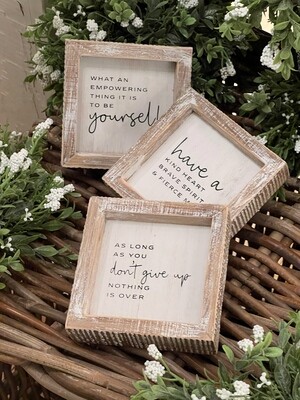 WHAT AN
EMPOWERING
THING IT IS
TO BE
yourself
have a
KIND HEART
BRAVE SPIRIT
& FIERCE
AS LONG
AS YOU
don't give up
NOTHING
IS OVER